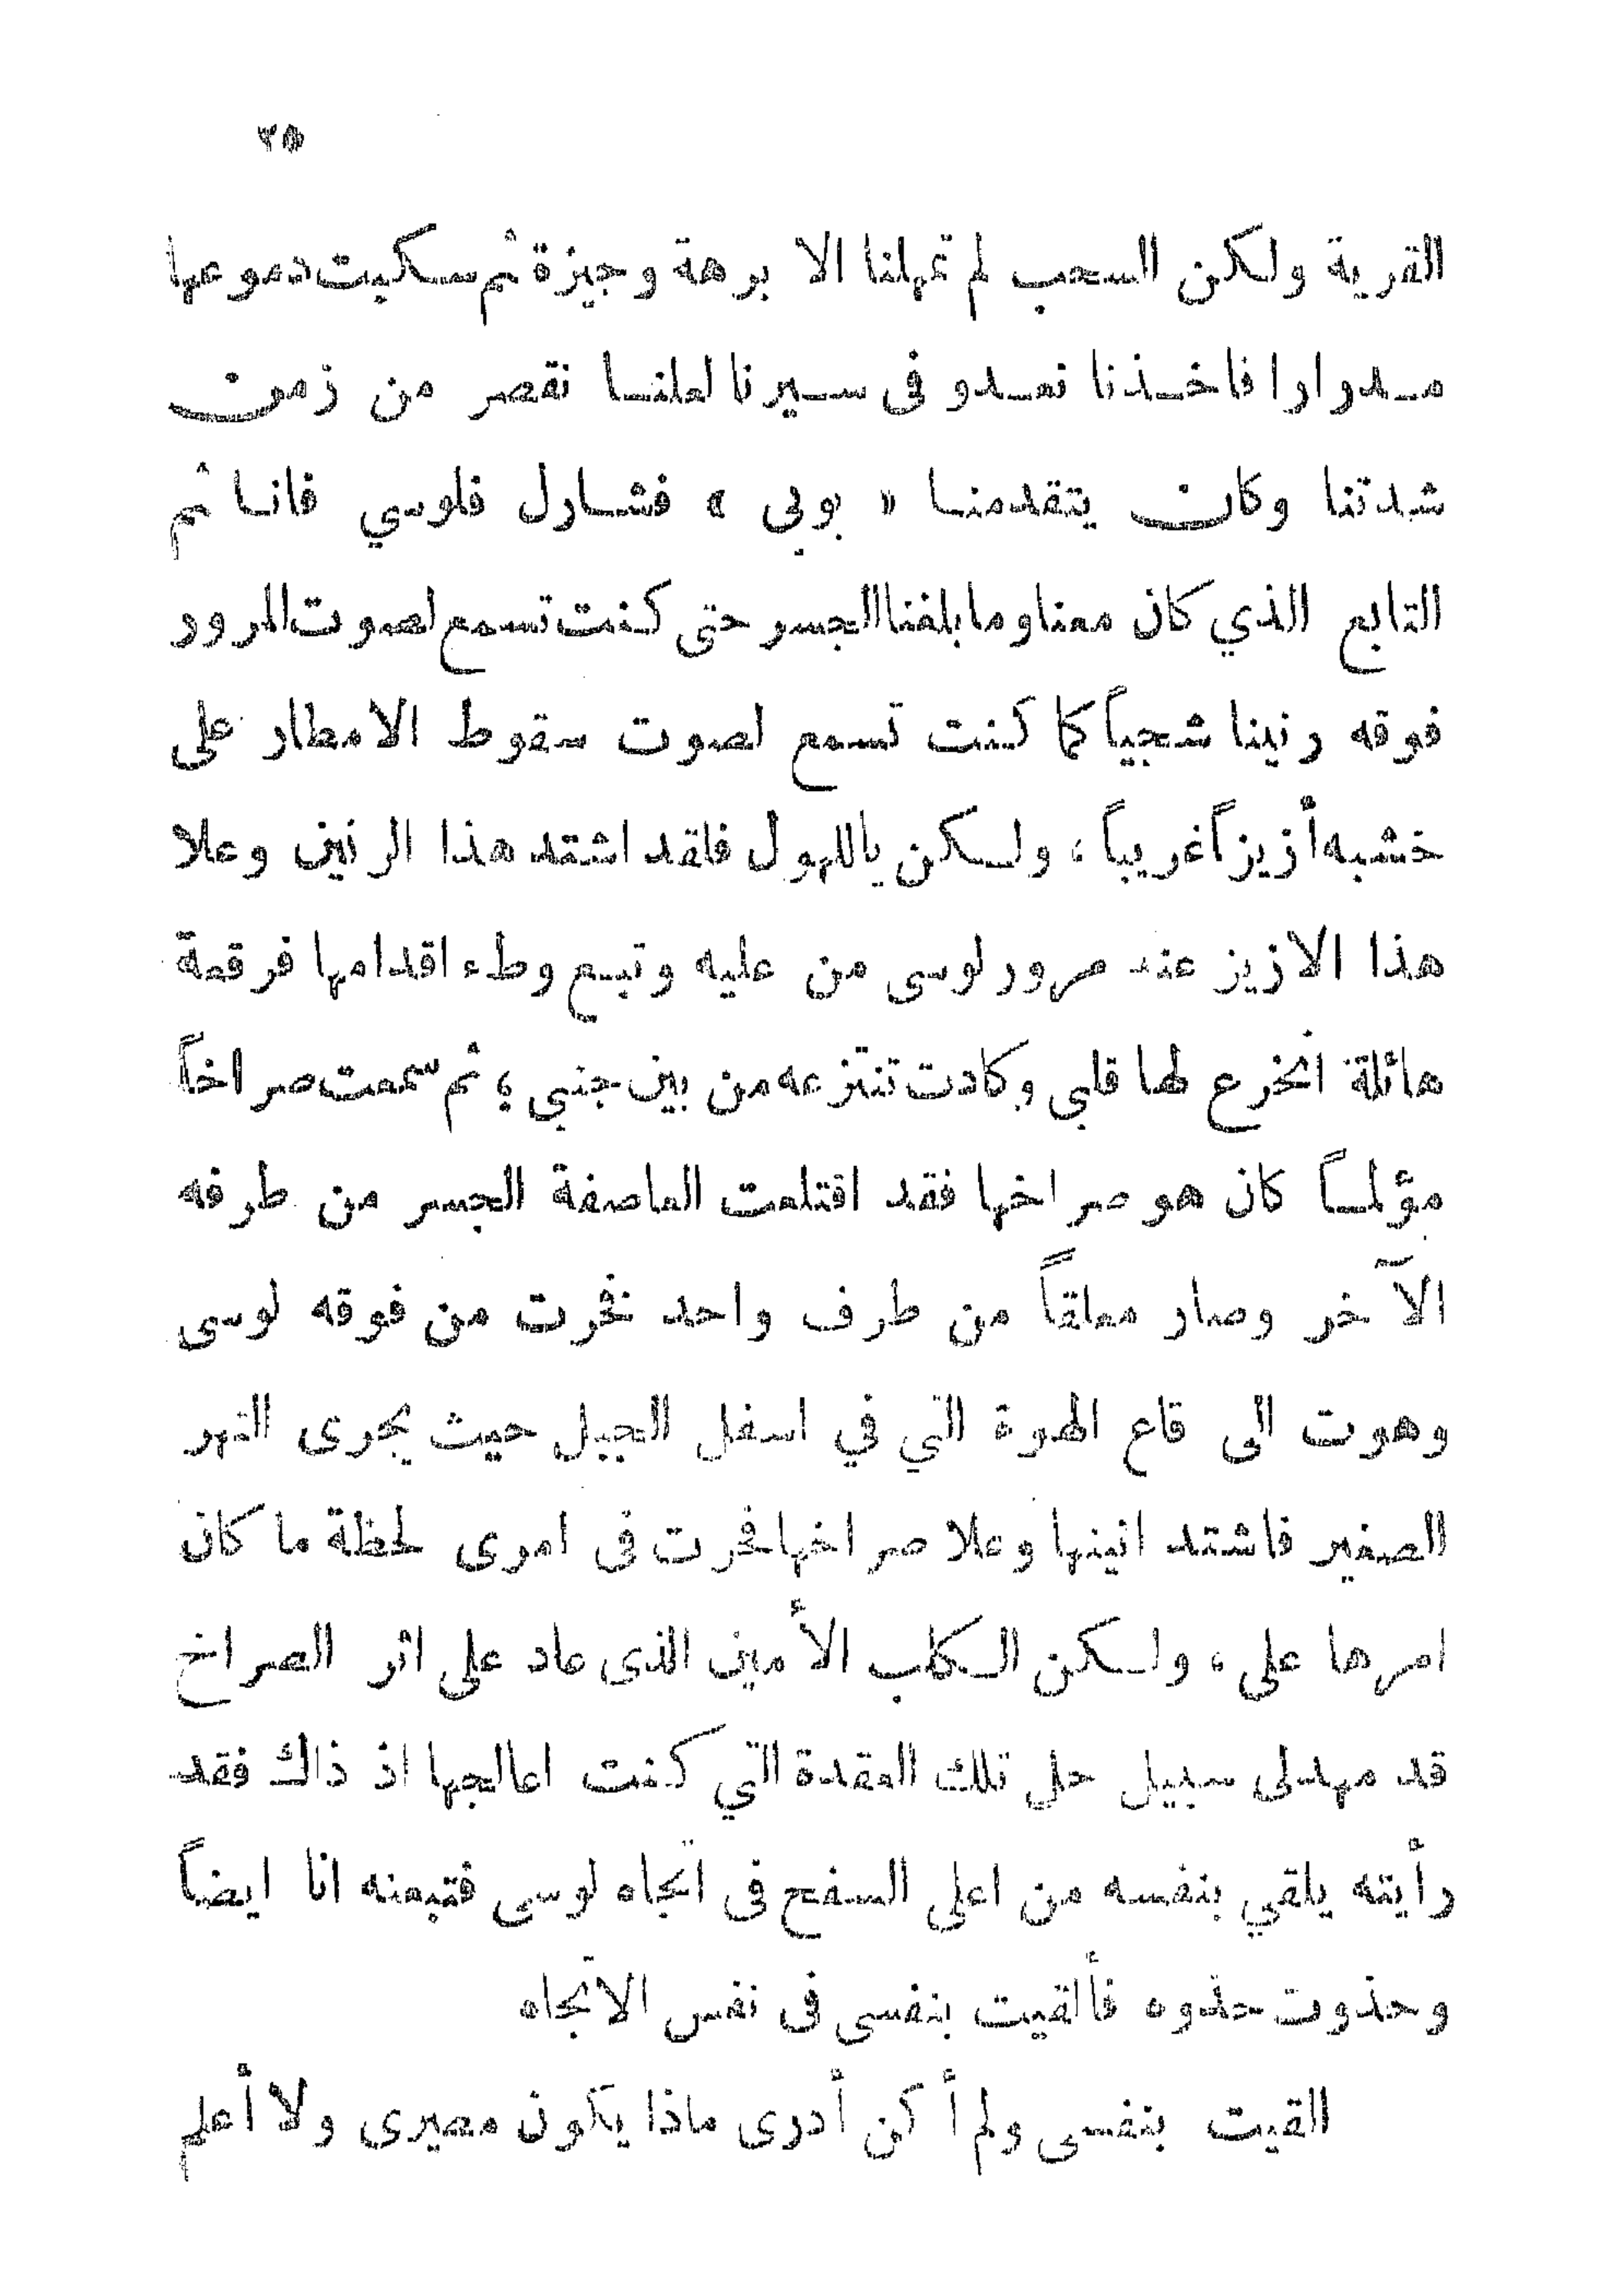 ٢٥
القرية ولكن السحب لم تمهلنا الا برهة وجيزة ثم سكبت دموعها
مدرارا فاخذنا نعدو فى سيرنا لعلنا نقصر من زمن
شدتنا وكان يتقدمنا « بوبي » فشارل فلوسي فانا ثم
التابع الذي كان معنا وما بلغنا الجسر حتى كنت تسمع لصوت المرور
فوقه رنينا شجياً كما كنت تسمع لصوت سقوط الامطار على
خشبه أزيزاً غريباً ، ولكن ياللهول فلقد اشتد هذا الرنين وعلا
هذا الازيز عند مرور لوسى من عليه وتبع وطء اقدامها فرقعة
هائلة انخرع لها قلبي وكادت تنتزعه من بين جنبي ؛ ثم سمعت صراخاً
مؤلماً كان هو صراخها فقد اقتلعت العاصفة الجسر من طرفه
الآخر وصار معلقاً من طرف واحد نخرت من فوقه لوسى
وهوت الى قاع الهوة التي في اسفل الجبل حيث يجرى النهر
الصغير فاشتد انينها وعلا صراخها فحرت فى امرى لحظة ما كان
امرها على ، ولكن الكلب الأمين الذى عاد على اثر الصراخ
قد مهد لى سبيل حل تلك العقدة التي كنت اعالجها اذ ذاك فقد
رأيته يلقي بنفسه من اعلى السفح فى اتجاه لوسى فتبعته انا ايضاً
وحذوت حذوه فألقيت بنفسى فى نفس الاتجاه
القيت بنفسى ولم أكن أدرى ماذا يكون مصيرى ولا أعلم